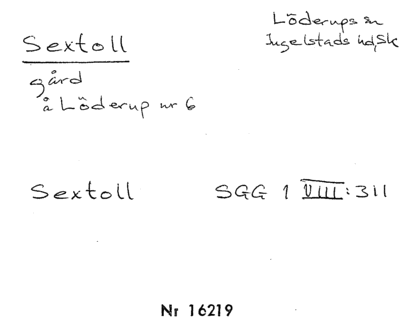 Sextoll
Löderups sn
Ingelstads hd, Sk
gård
å Löderup nr 6
Sextoll SGG 1 VIII:311
Nr 16219